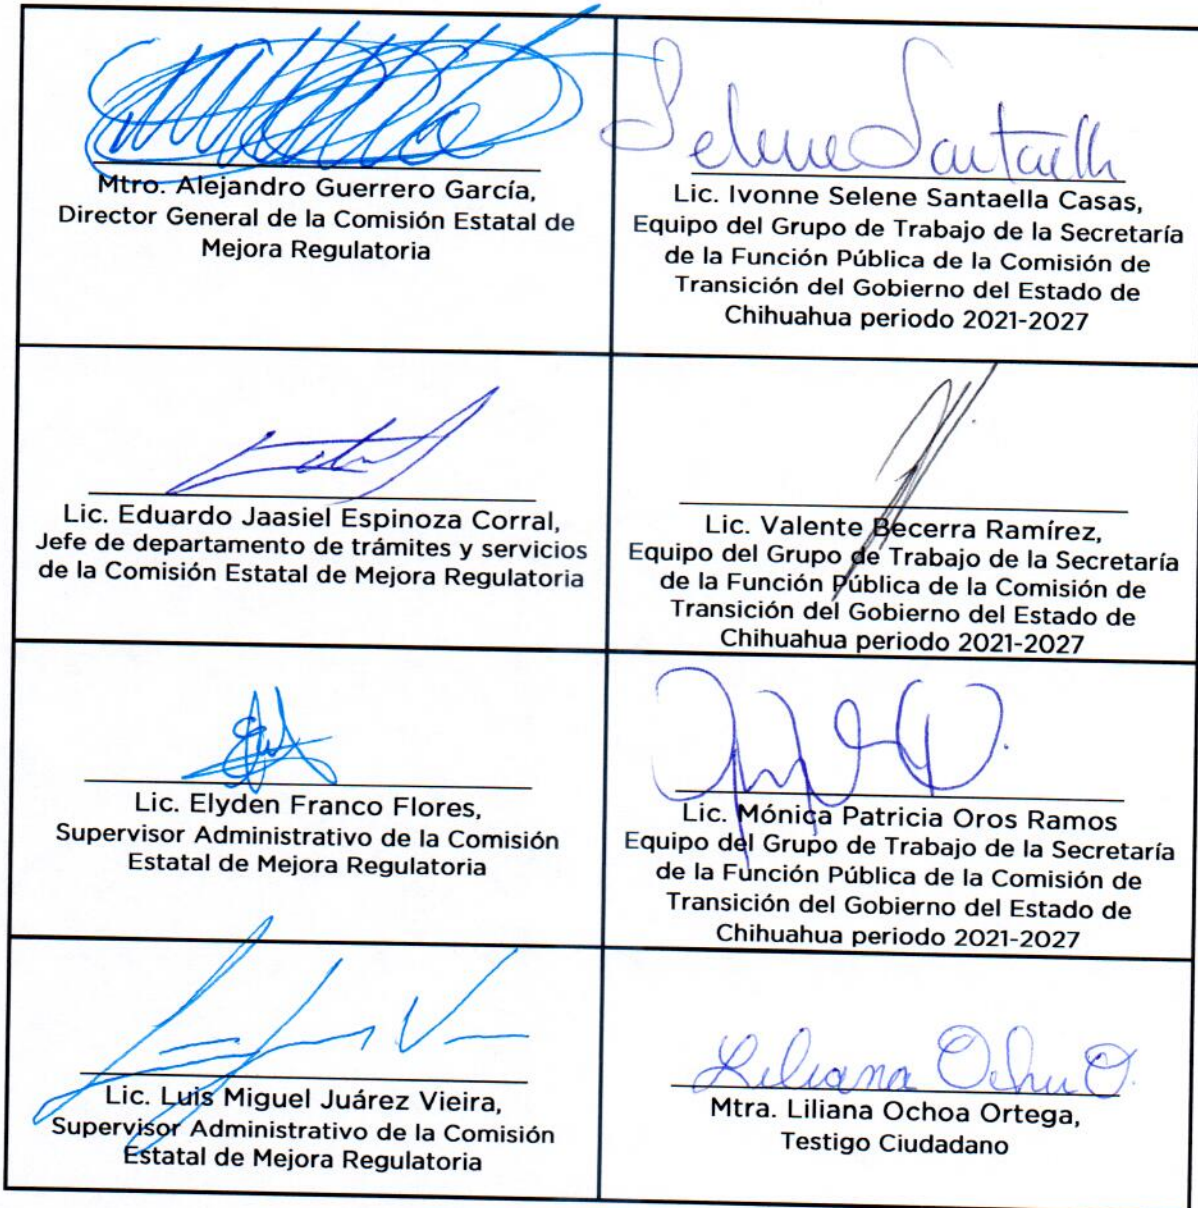 Mtro. Alejandro Guerrero García,
Director General de la Comisión Estatal de
Mejora Regulatoria
Selene Santaella
Lic. Ivonne Selene Santaella Casas,
Equipo del Grupo de Trabajo de la Secretaría
de la Función Pública de la Comisión de
Transición del Gobierno del Estado de
Chihuahua periodo 2021-2027
Lic. Eduardo Jaasiel Espinoza Corral,
Jefe de departamento de trámites y servicios
de la Comisión Estatal de Mejora Regulatoria
Lic. Valente Becerra Ramírez,
Equipo del Grupo de Trabajo de la Secretaría
de la Función Pública de la Comisión de
Transición del Gobierno del Estado de
Chihuahua periodo 2021-2027
Lic. Elyden Franco Flores,
Supervisor Administrativo de la Comisión
Estatal de Mejora Regulatoria
Lic. Mónica Patricia Oros Ramos
Equipo del Grupo de Trabajo de la Secretaría
de la Función Pública de la Comisión de
Transición del Gobierno del Estado de
Chihuahua periodo 2021-2027
Lic. Luis Miguel Juárez Vieira,
Supervisor Administrativo de la Comisión
Estatal de Mejora Regulatoria
Liliana Ochoa O.
Mtra. Liliana Ochoa Ortega,
Testigo Ciudadano